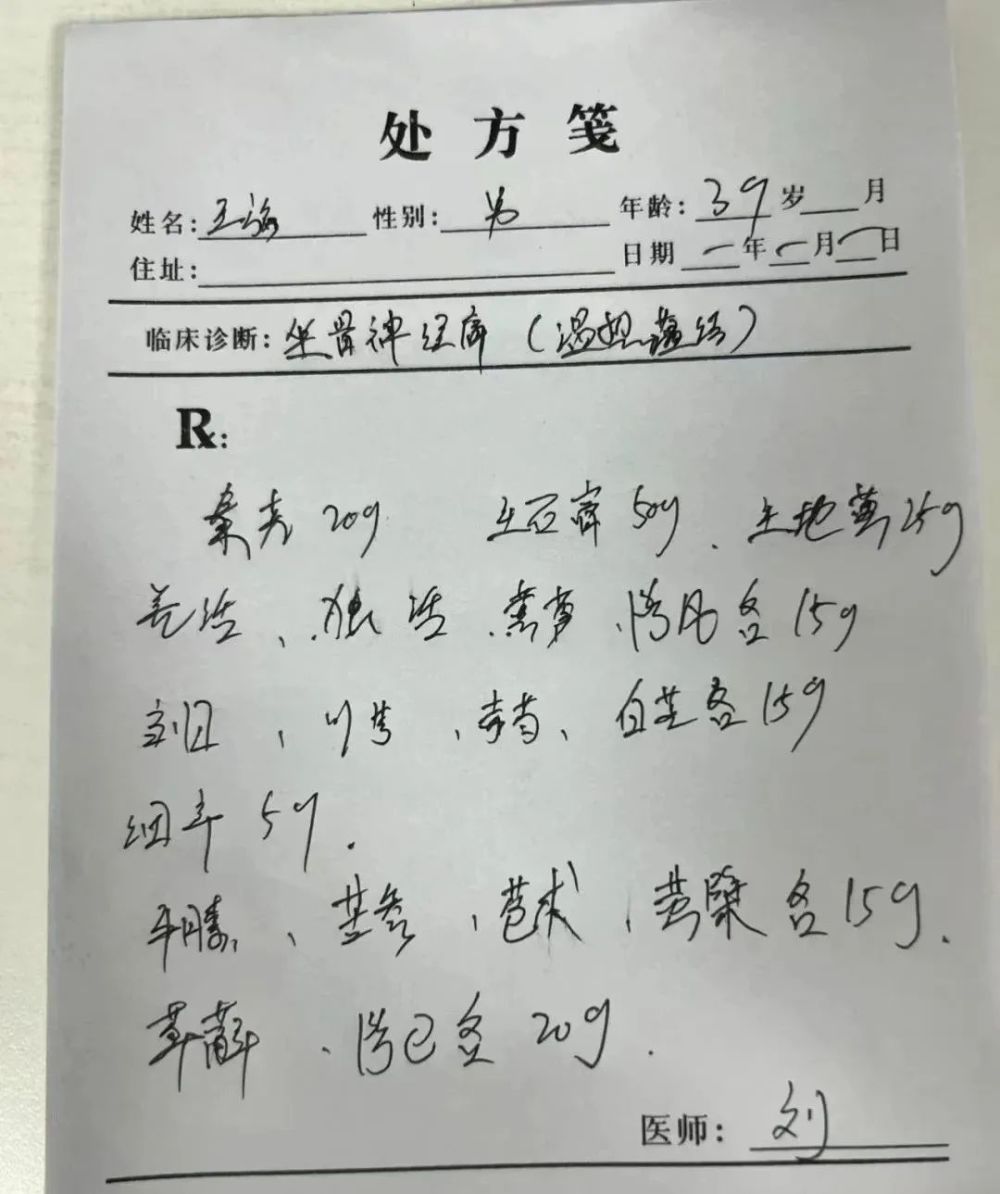 处方笺
姓名: 王海 性别: 男 年龄: 39岁 月
住址: 日期 年 月 日
临床诊断: 坐骨神经痛（湿热蕴结）
Rx:
秦艽 20g 生石膏 50g、生地黄 25g
羌活、独活、黄芩、防风各15g
当归、川芎、赤芍、白芷各15g
细辛 5g.
牛膝、苦参、苍术、黄柏各15g.
萆薢、防己各 20g.
医师: 刘